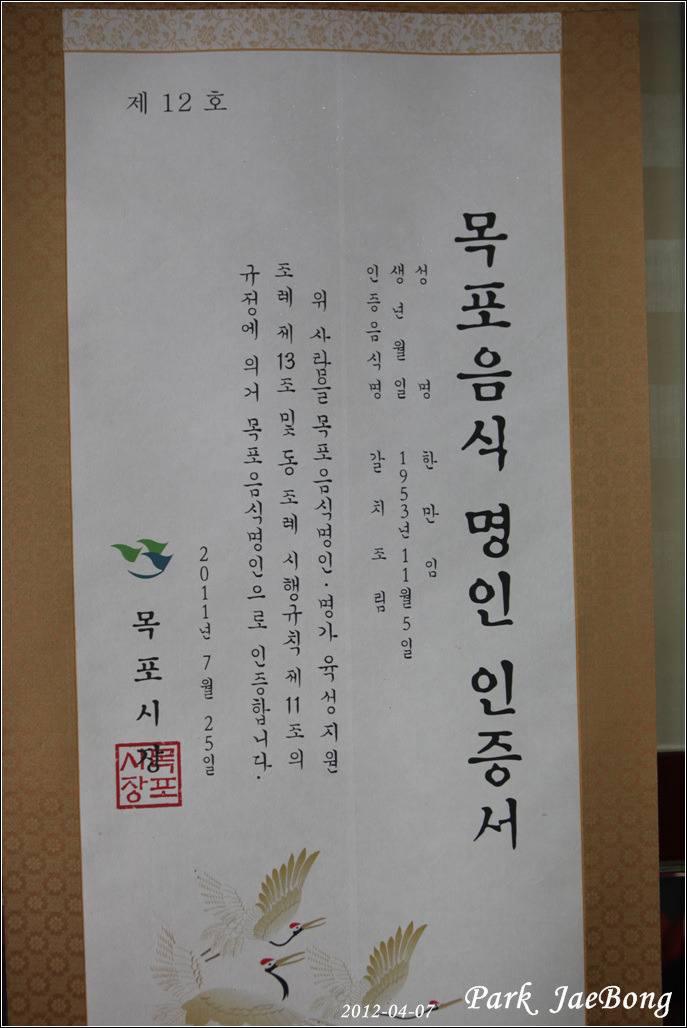 제 12 호
목포음식 명인 인증서
성 명 한 만 임
생 년 월 일 1953년 11월 5일
인증음식명 갈 치 조 림
위 사람을 목포음식명인·명가 육성지원
조례 제13조 및 동 조례 시행규칙 제11조의
규정에 의거 목포음식명인으로 인증합니다.
2011년 7월 25일
목 포 시 장
목포
시장
2012-04-07
Park JaeBong